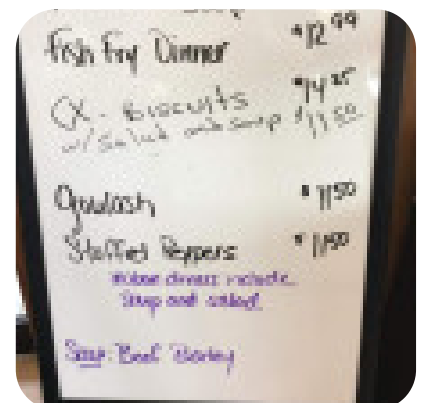 Fish Fry Dinner $12.99
CX - Biscuits
w/ Salad and soup
Goulash $11.50
Stuffed Peppers $11.50
dinners include
Soup and salad
Soup- Beef Barley